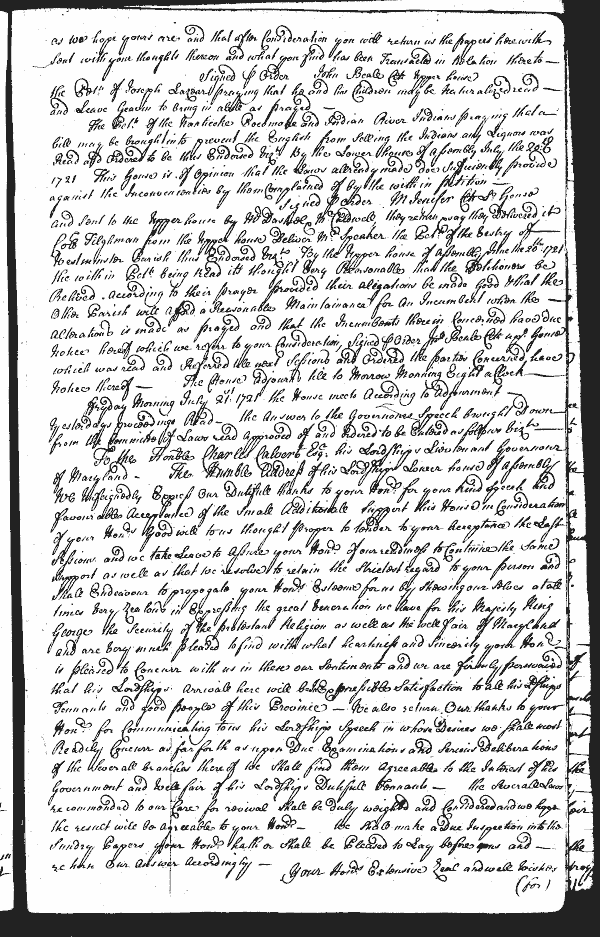 as we hope yours are and that after Consideration you will return us the papers herewith
Sent with your thoughts thereon and what you find has been Transacted in Relation thereto —
Signed P Order John Beale Clk Upper house
the Petn. of Joseph Lazear praying that he and his Children may be Naturalized read —
and Leave Given to bring in a bill as prayed —
The Petn. of the Nanticoke and Indian River Indians praying that a
bill may be brought in to prevent the English from Selling the Indians any Liquors was
Read and Ordered to be thus Endorsed Vizt. By the Lower house of assembly July the 20th
1721 This house is of Opinion that the Laws allready made does Sufficiently provide
against the Inconveniencies by them Complained of by the within petition —
Signed P Order M Jenifer Clk Lo house
and Sent to the Upper house by Mr. Dashiel Mr. they return say they Delivered it
Colo Tilghman from the Upper house Deliver Mr. Speaker the Petn. of the Vestry of
Westminster Parish thus Endorsed Vizt. By the Upper house of assembly June the 20th. 1721
the within Petn. being Read its thought Very Reasonable that the Petitioners be
Relieved According to their prayer provided their allegations be made Good & that the
Other Parish will afford a Reasonable Maintainance for An Incumbent when the —
alteration is made as prayed and that the Incumbents therein Concerned have due
Notice hereof which we refer to your Consideration, Signed P Order Jno. Beale Clk upr. house
which was read and Referred till next Sessions and Ordered the parties Concerned have
Notice thereof — The House Adjourns till to Morrow Morning Eight a Clock
Fryday Morning July 21st. 1721 the House meets According to Adjournment —
Yesterdays proceedings Read — the Answer to the Governours Speech brought Down
from the Committee of Laws read Approved of and Ordered to be Entered as follows Vizt —
To the Honble Charles Calvert Esqr. his Lordships Lieutenant Governour
of Maryland — The Humble Address of his Lordships Lower house of assembly
We Unfeignedly Express Our Dutifull thanks to your Honr. for your kind Speech and
favourable Acceptance of the Small Additionale Support this House in Consideration
of your Honrs. Good will to us thought proper to tender to your Acceptance the Last
Sessions and we take Leave to Assure your Honr. of our readiness to Continue the Same
Support as well as that we resolve to retain the Strictest regard to your Person and
Shall Endeavour to propogate your Honrs. Esteeme for us by Shewing our Selves at all
times Very Zealous in Expressing the great Veneration we have for his Majesty King
George the Security of the Protestant Religion as well as the wellfair of Maryland
and are Very much pleased to find with what heartiness and Sincerity your Honr.
is pleased to Concurr with us in these our Sentiments and we are firmly perswaded
that his Lordships Arrivall here will be Inexpressible Satisfaction to all his Ldships
Tennants and good people of this Province — We also return Our thanks to your
Honr. for Communicating to us his Lordships Speech in whose Desires we Shall most
Readily Concur as far forth as upon Due Examinations and Serious Deliberations
of the Severall branches thereof we Shall find them Agreeable to the Interest of his
Government and Wellfair of his Lordships Dutifull Tennants — the Severall Laws
recommended to our Care for revival Shall be Duly weighed and Considered and we hope
the result will be Agreeable to your Honr. — We Shall make a Due Inspection into the
Sundry Papers your Honr. hath or Shall be Pleased to Lay before us and —
return Our Answer Accordingly —
Your Honrs. Extensive Zeal and well wishes
(for)